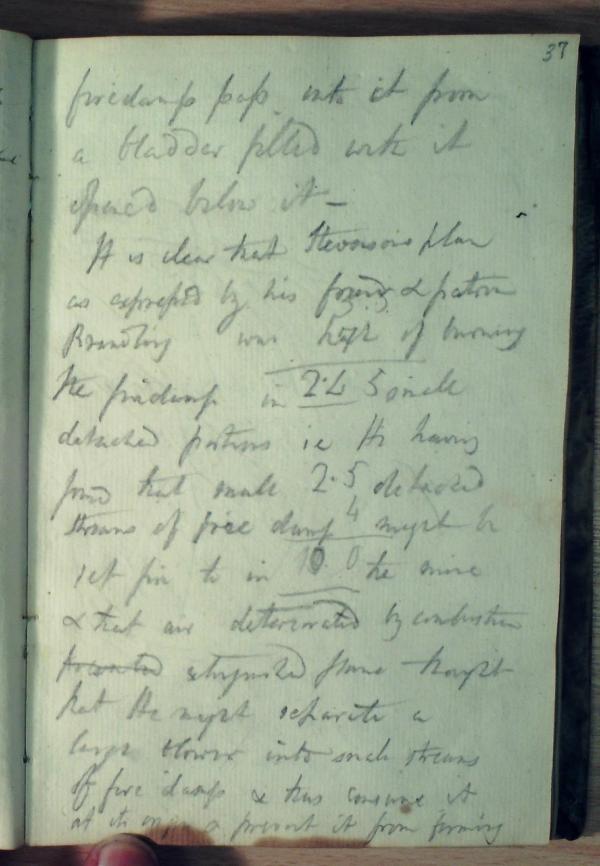 37
firedamp pass into it from
a bladder filled with it
opened below it –
It is clear that Stevensons plan
as expressed by his friend & patron
Brandling was that of burning
the firedamp in small
2.4 5
detached portions ie He having
found that small detached
2.5
streams of fire damp might be
4
set fire to in the mine
10.0
& that air deteriorated by combustion
extinguished flame thought
that He might separate a
large blower into such streams
of fire damp & thus consume it
at its origin & prevent it from forming